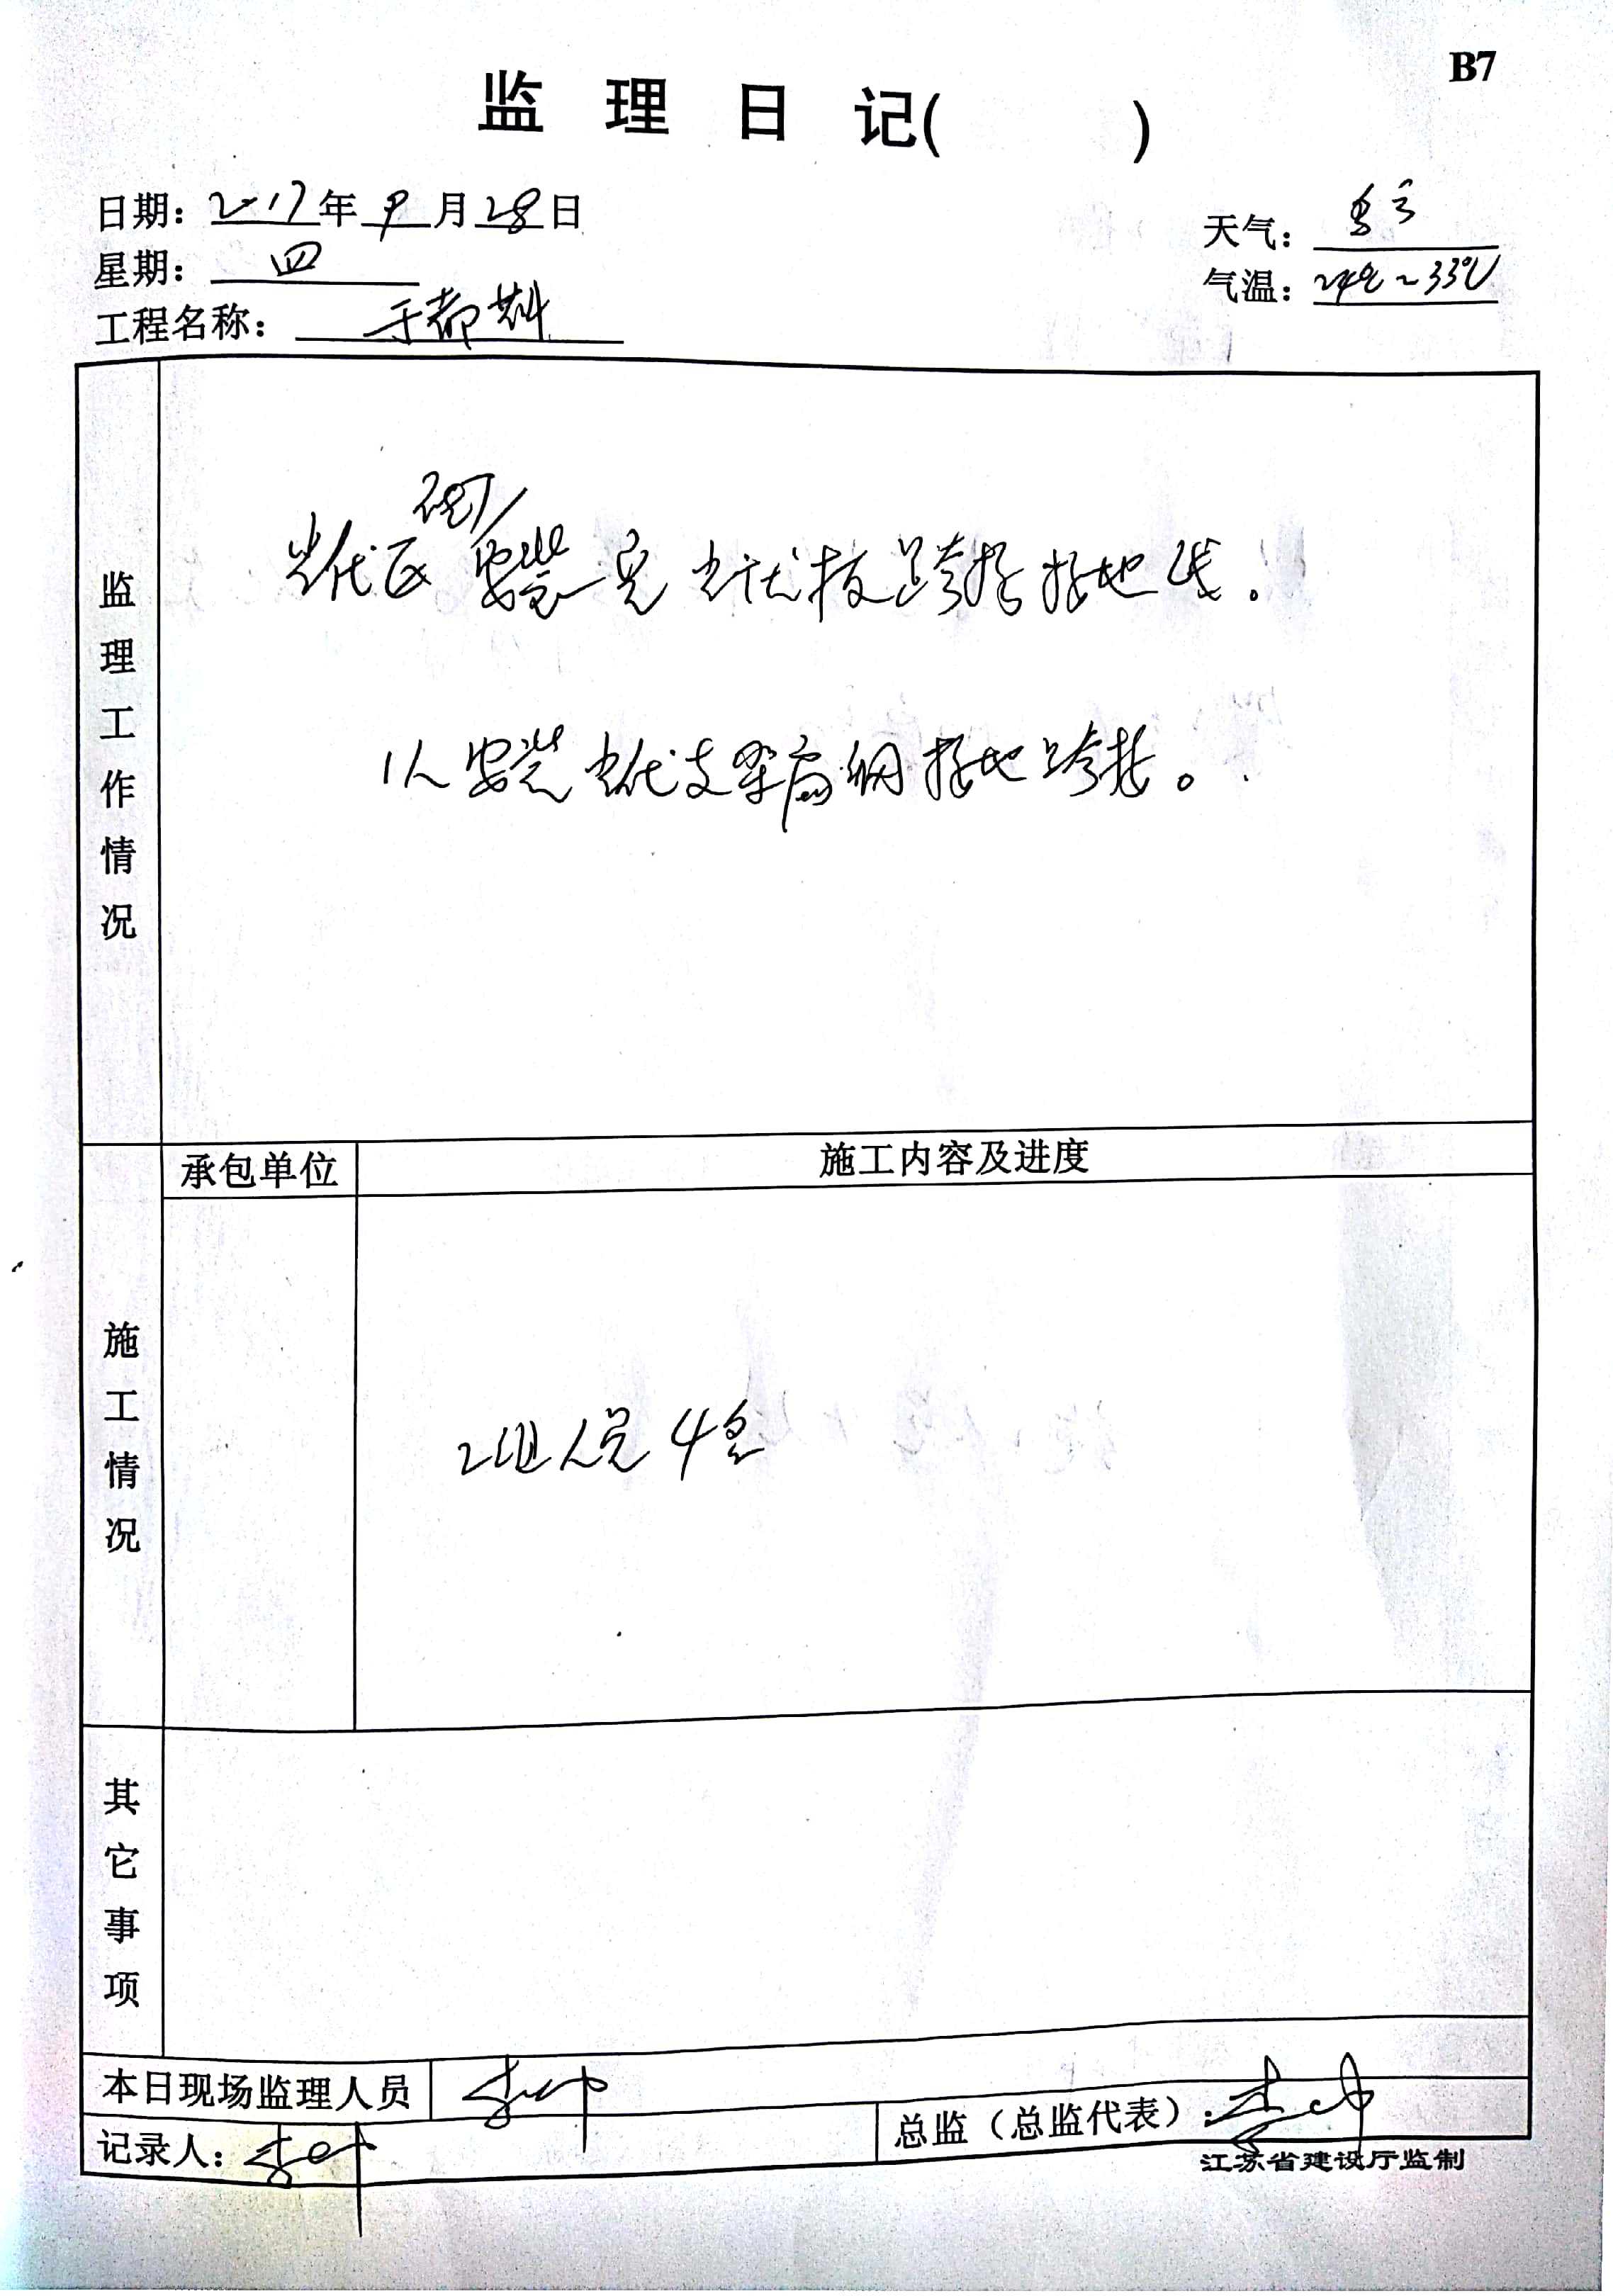 B7
监理日记( )
日期: 2017年9月28日
天气: 多云
星期: 四
气温: 24℃~33℃
工程名称: 于都
监理工作情况
光伏区 安装 光伏板跨接接地线.
安装光伏支架 接地跨接。
承包单位 施工内容及进度
施工情况
2组人员4名
其它事项
本日现场监理人员
记录人:
总监（总监代表）:
江苏省建设厅监制